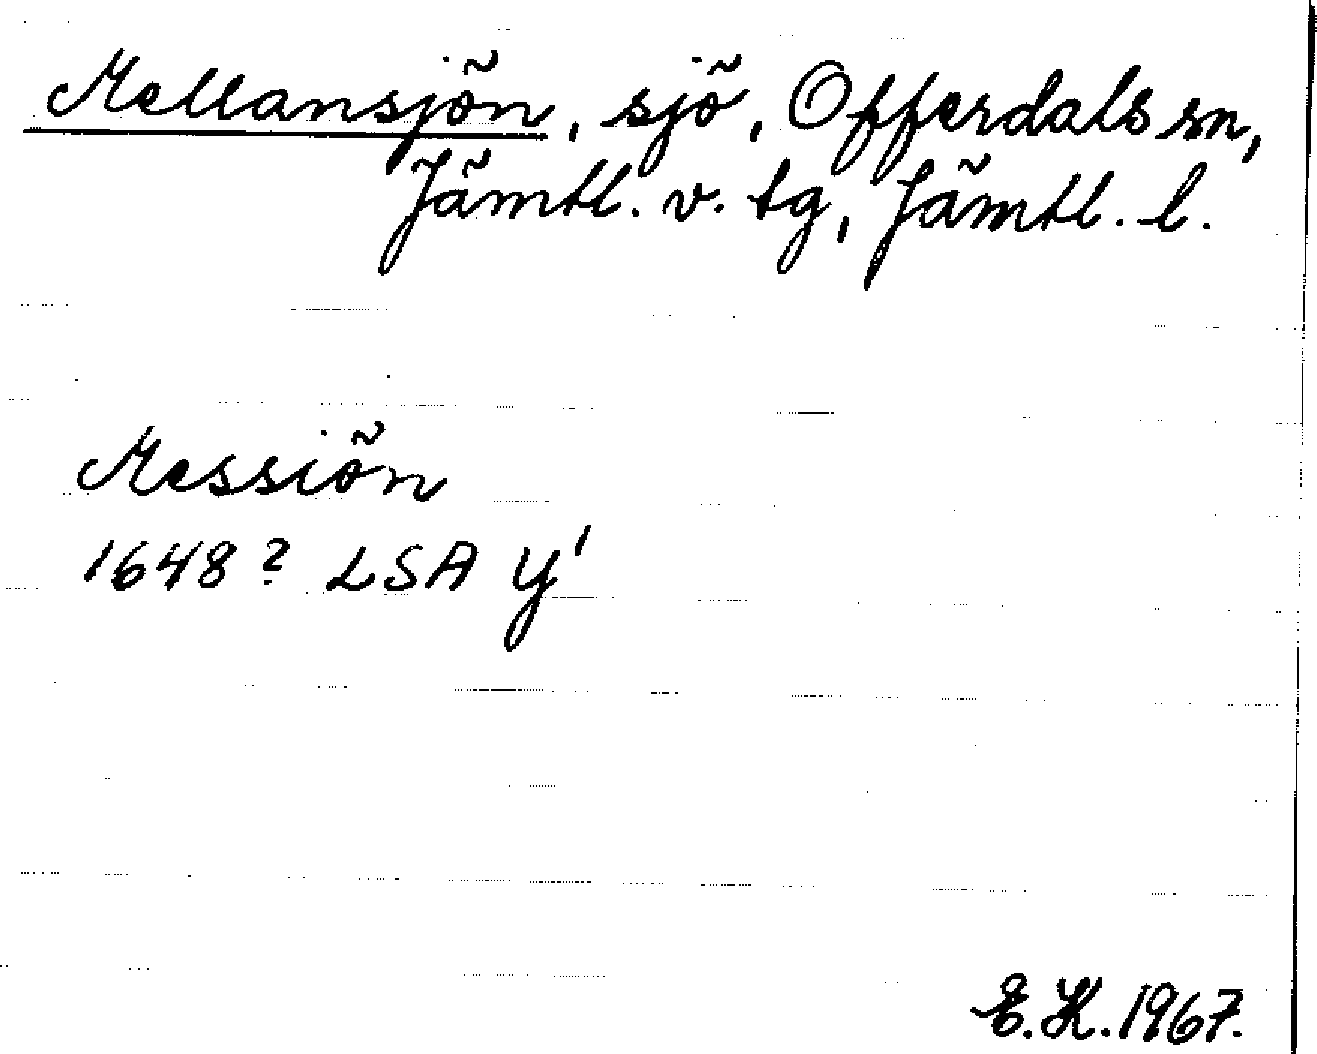 Mellansjön, sjö, Offerdals sn,
Jämtl. v. tg, Jämtl. l.
Messiön
1648? LSA Y¹
E.K. 1967.